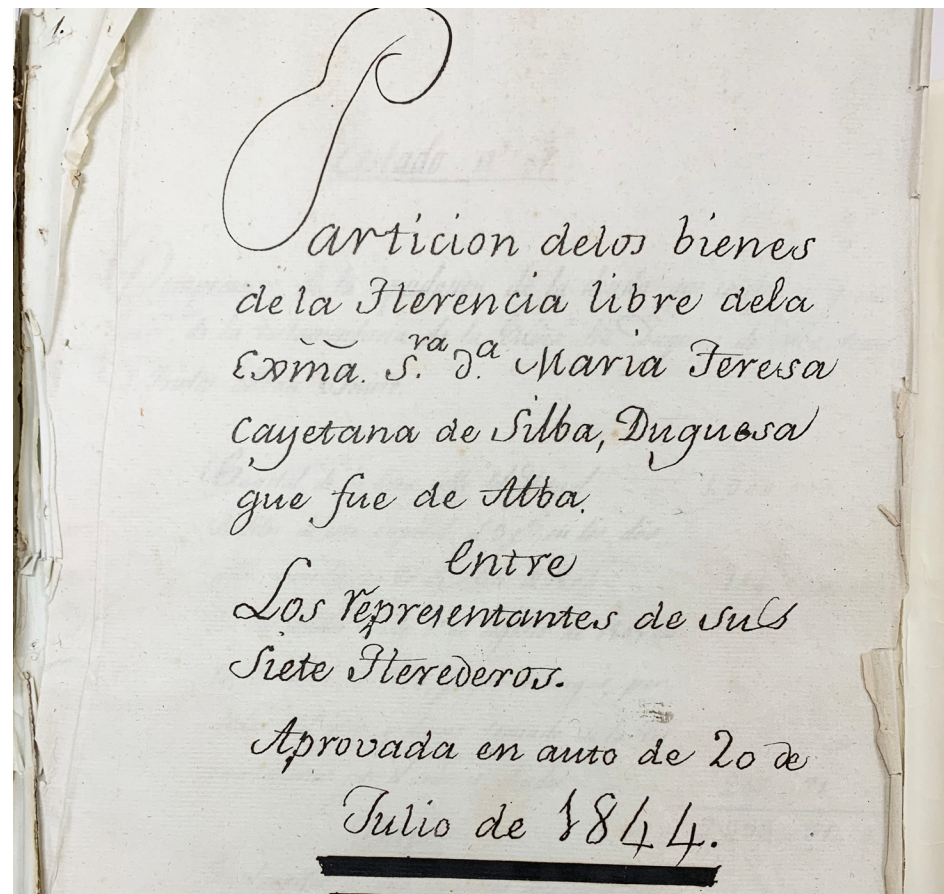 1.
Particion delos bienes
dela Herencia libre dela
Exm̃a. S.ra D.a Maria Teresa
Cayetana de Silba, Duquesa
que fue de Alba.
Entre
Los representantes de sus
Siete Herederos.
Aprovada en auto de 20 de
Julio de 1844.